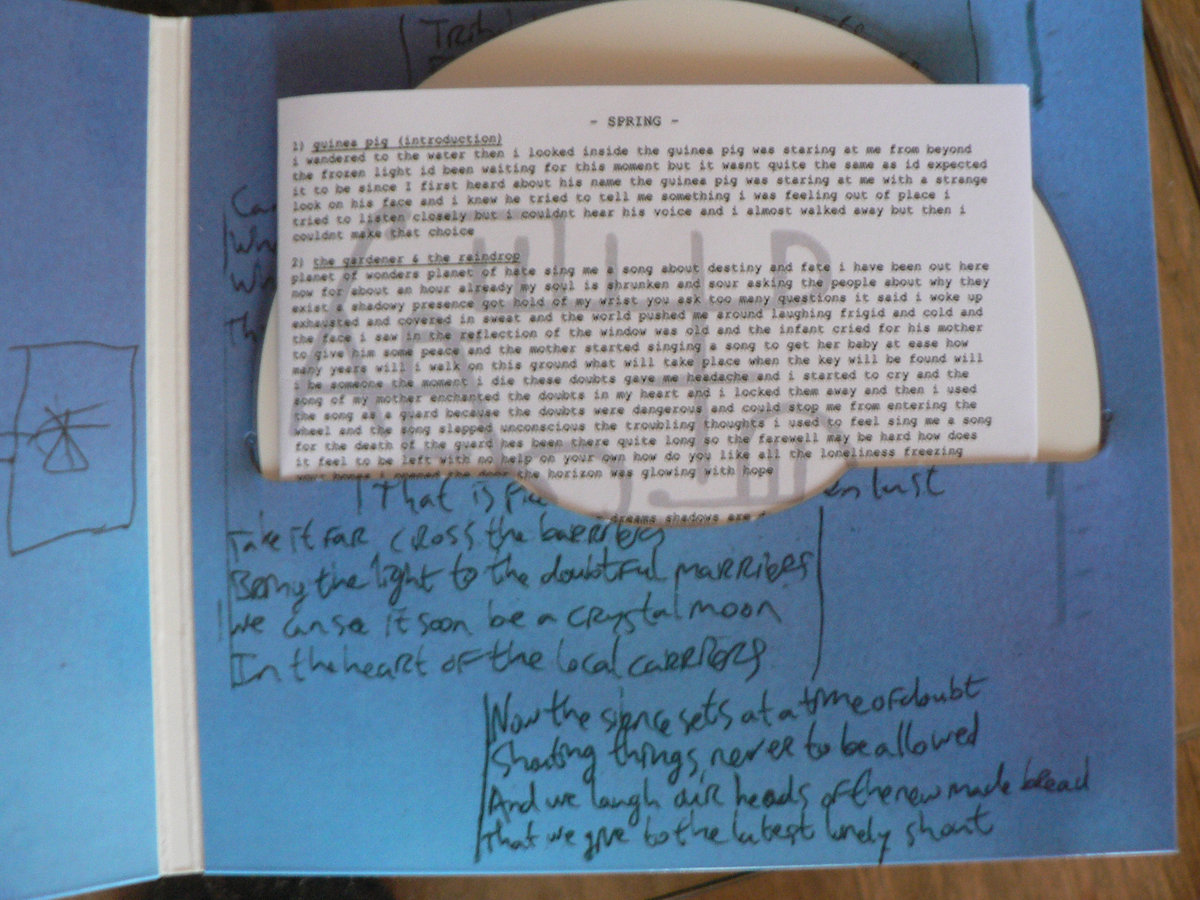 - SPRING -
1) guinea pig (introduction)
i wandered to the water then i looked inside the guinea pig was staring at me from beyond
the frozen light id been waiting for this moment but it wasnt quite the same as id expected
it to be since I first heard about his name the guinea pig was staring at me with a strange
look on his face and i knew he tried to tell me something i was feeling out of place i
tried to listen closely but i couldnt hear his voice and i almost walked away but then i
couldnt make that choice
2) the gardener & the raindrop
planet of wonders planet of hate sing me a song about destiny and fate i have been out here
now for about an hour already my soul is shrunken and sour asking the people about why they
exist a shadowy presence got hold of my wrist you ask too many questions it said i woke up
exhausted and covered in sweat and the world pushed me around laughing frigid and cold and
the face i saw in the reflection of the window was old and the infant cried for his mother
to give him some peace and the mother started singing a song to get her baby at ease how
many years will i walk on this ground what will take place when the key will be found will
i be someone the moment i die these doubts gave me headache and i started to cry and the
song of my mother enchanted the doubts in my heart and i locked them away and then i used
the song as a guard because the doubts were dangerous and could stop me from entering the
wheel and the song slapped unconscious the troubling thoughts i used to feel sing me a song
for the death of the guard hes been there quite long so the farewell may be hard how does
it feel to be left with no help on your own how do you like all the loneliness freezing
your bones i opened the door the horizon was glowing with hope
That is
lust
dreams shadows are
Take it far cross the barriers
Bring the light to the doubtful marriers
We can see it soon be a crystal moon
In the heart of the local carriers
Now the sience sets at a time of doubt
Shouting things, never to be allowed
And we laugh our heads of the new made bread
That we give to the latest lundy shout